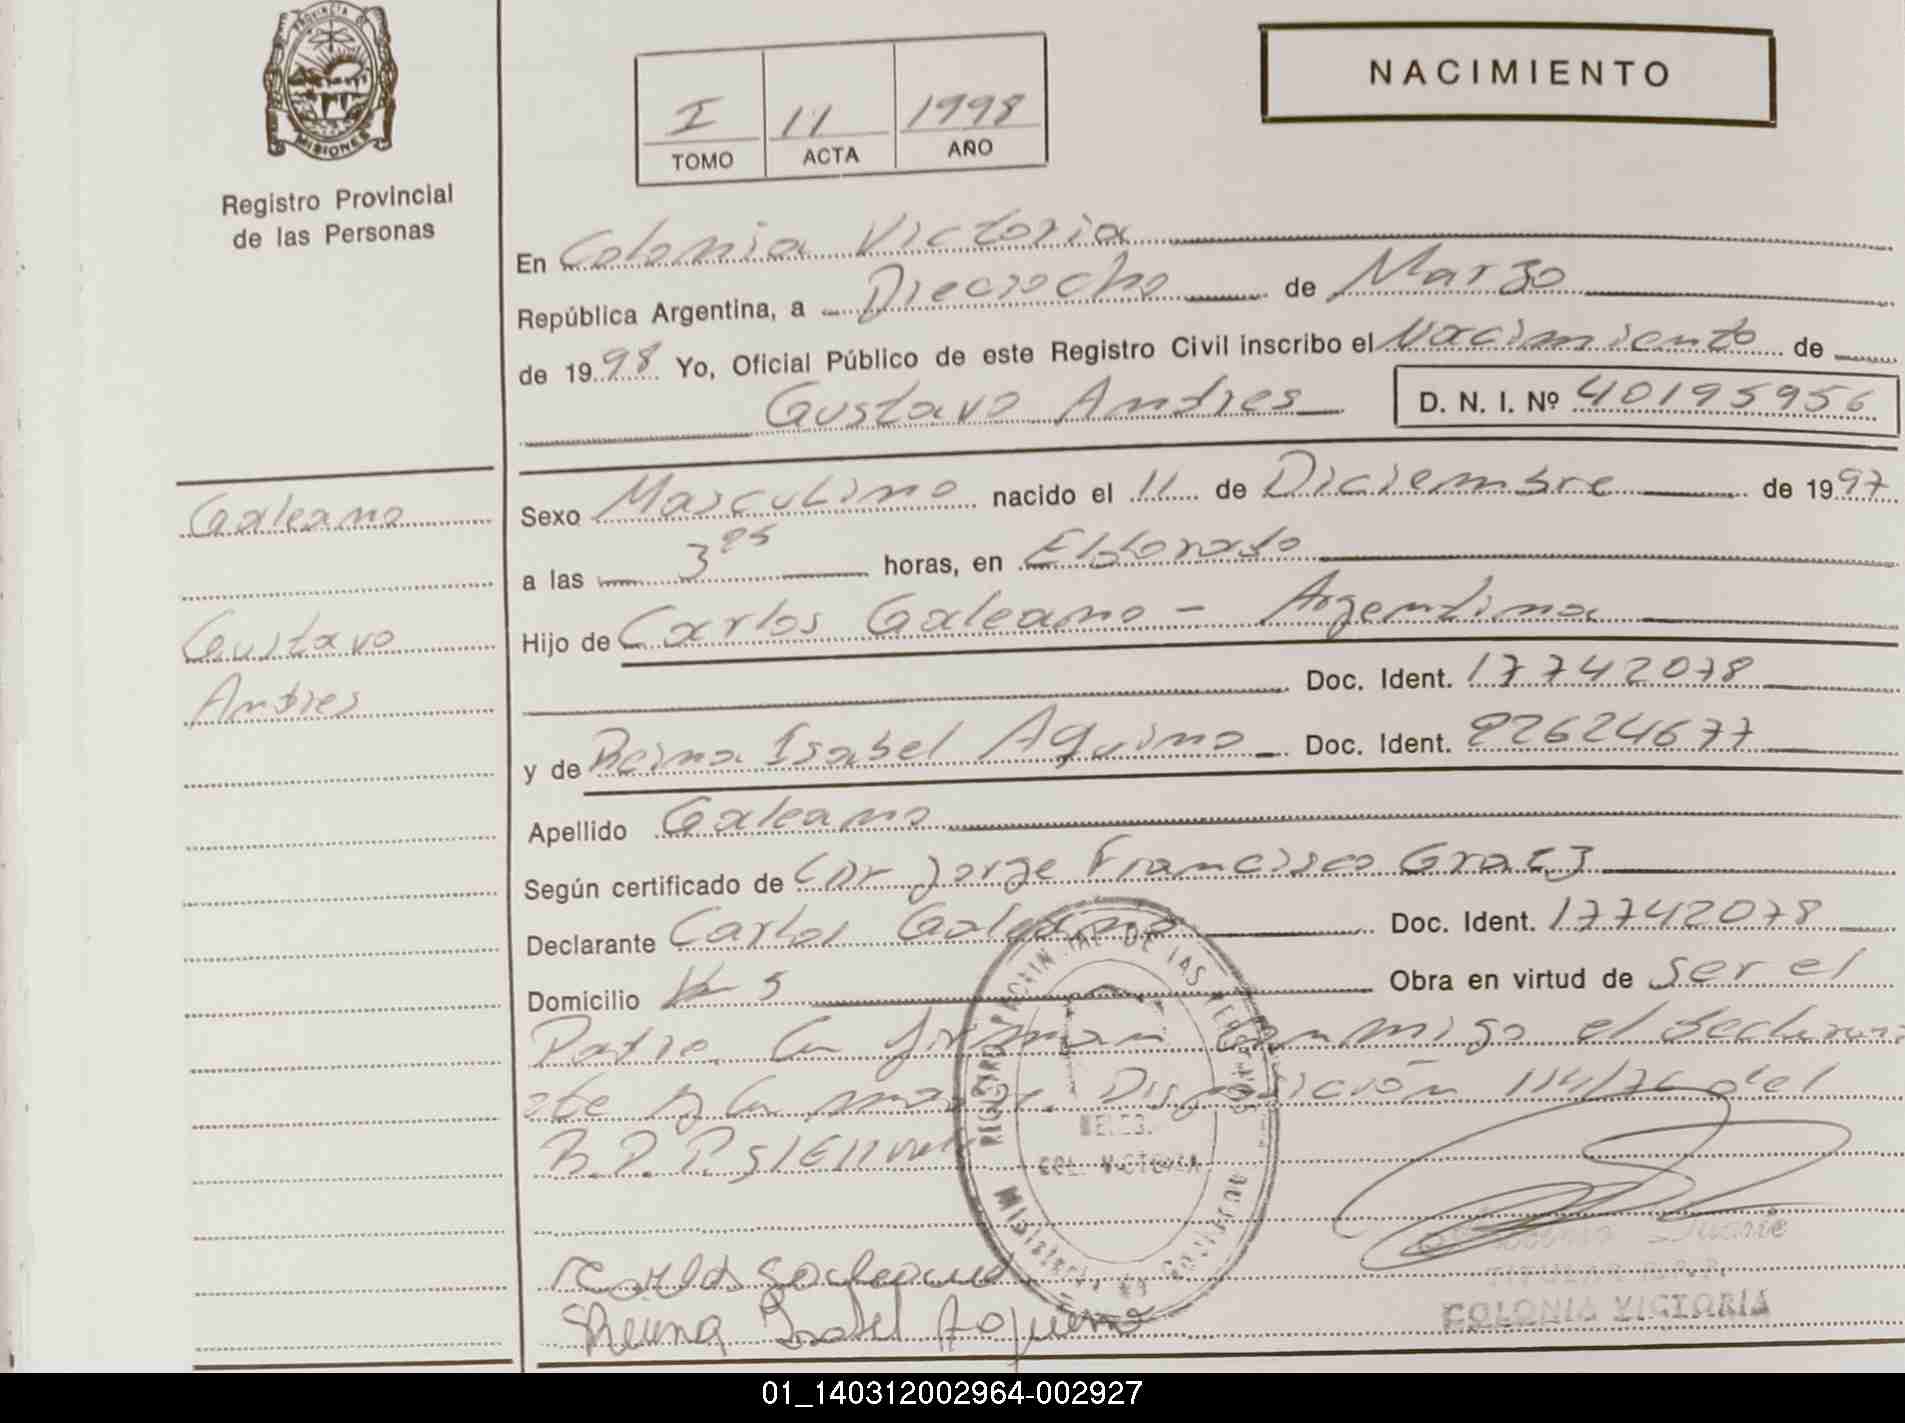 PROVINCIA DE
MISIONES
Registro Provincial
de las Personas
I 11 1998
TOMO ACTA AÑO
NACIMIENTO
En Colonia Victoria
República Argentina, a Dieciocho de Marzo
de 1998 Yo, Oficial Público de este Registro Civil inscribo el Nacimiento de
Gustavo Andres D. N. I. Nº 40195956
Galeano
Gustavo
Andres
Sexo Masculino nacido el 11 de Diciembre de 1997
a las 3 25 horas, en Eldorado
Hijo de Carlos Galeano - Argentina
Doc. Ident. 17742078
y de Reina Isabel Aquino Doc. Ident. 22624677
Apellido Galeano
Según certificado de Jorge Francisco
Declarante Carlos Galeano Doc. Ident. 17742078
Domicilio 5 Obra en virtud de ser el
Padre. firman conmigo el declara
nte y la madre. Disposición del
R.P.P.
Carlos Galeano
Reina Isabel Aquino
COL. VICTORIA
TITULAR R.P.P.
COLONIA VICTORIA
01_140312002964-002927